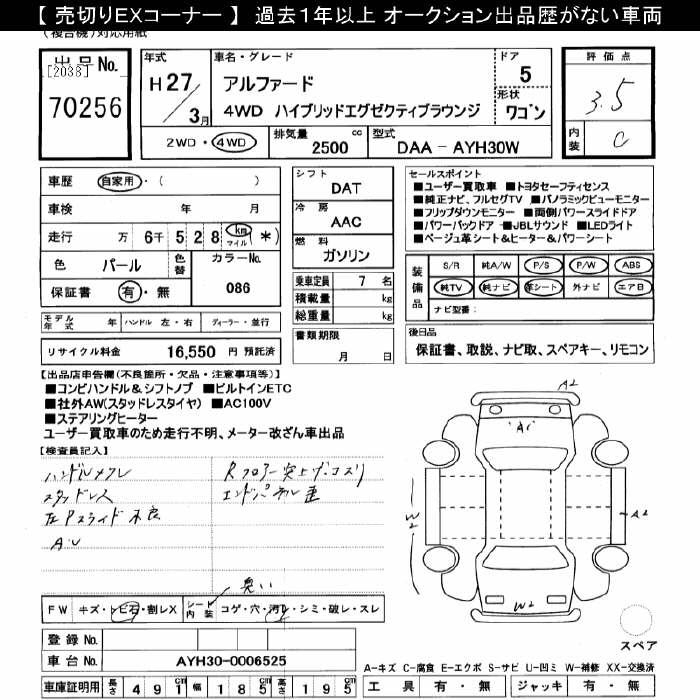 【 売切りEXコーナー 】 過去1年以上 オークション出品歴がない車両
(複合機)対応用紙
出品No.
[2038]
70256
年式
H27/3月
車名・グレード
アルファード
4WD ハイブリッドエグゼクティブラウンジ
ドア
5
形状
ワゴン
2WD・4WD
排気量
2500 cc
型式
DAA - AYH30W
評価点
3.5
内装
C
車歴 自家用・( )
車検 年 月
走行 万 6千 5 2 8 km マイル (*)
色 パール
色替
カラーNo.
086
保証書 有・無
シフト
DAT
冷房
AAC
燃料
ガソリン
乗車定員 7 名
積載量 kg
総重量 kg
書類期限
月 日
セールスポイント
■ユーザー買取車 ■トヨタセーフティセンス
■純正ナビ、フルセグTV ■パノラミックビューモニター
■フリップダウンモニター ■両側パワースライドドア
■パワーバックドア ■JBLサウンド ■LEDライト
■ベージュ革シート&ヒーター&パワーシート
装備品
S/R 純A/W P/S P/W ABS
純TV 純ナビ 革シート 外ナビ エアB
ナビ型番:
後日品
保証書、取説、ナビ取、スペアキー、リモコン
モデル年式 年 ハンドル 左・右 ディーラー・並行
リサイクル料金 16,550 円 預託済
【出品店申告欄(不良箇所・欠品・注意事項等)】
■コンビハンドル&シフトノブ ■ビルトインETC
■社外AW(スタッドレスタイヤ) ■AC100V
■ステアリングヒーター
ユーザー買取車のため走行不明、メーター改ざん車出品
【検査員記入】
ハンドルスレ
スタッドレス
左Pスライド不良
A・U
Rフロアー突上げ・コスリ
エンドパネル歪
臭い
FW キズ・トビ石・割レX
シート内装 コゲ・穴・汚レ・シミ・破レ・スレ
A2
A1
W2
A2
W2
スペア
登録No.
車台No. AYH30-0006525
車庫証明用 長さ 491cm 幅 185cm 高さ 195cm
A-キズ C-腐食 E-エクボ S-サビ U-凹ミ W-補修 XX-交換済
工具 有・無 ジャッキ 有・無